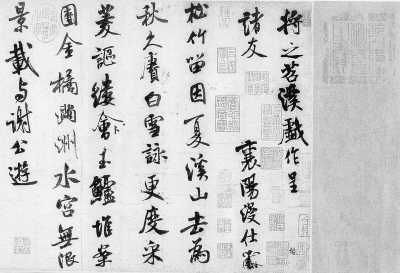 將之苕溪戲作呈
諸友
襄陽漫仕黻
松竹留因夏溪山去為
秋久賡白雪詠更度采
菱謳縷會玉鱸堆案
團金橘滿洲水宮無限
景載与謝公遊